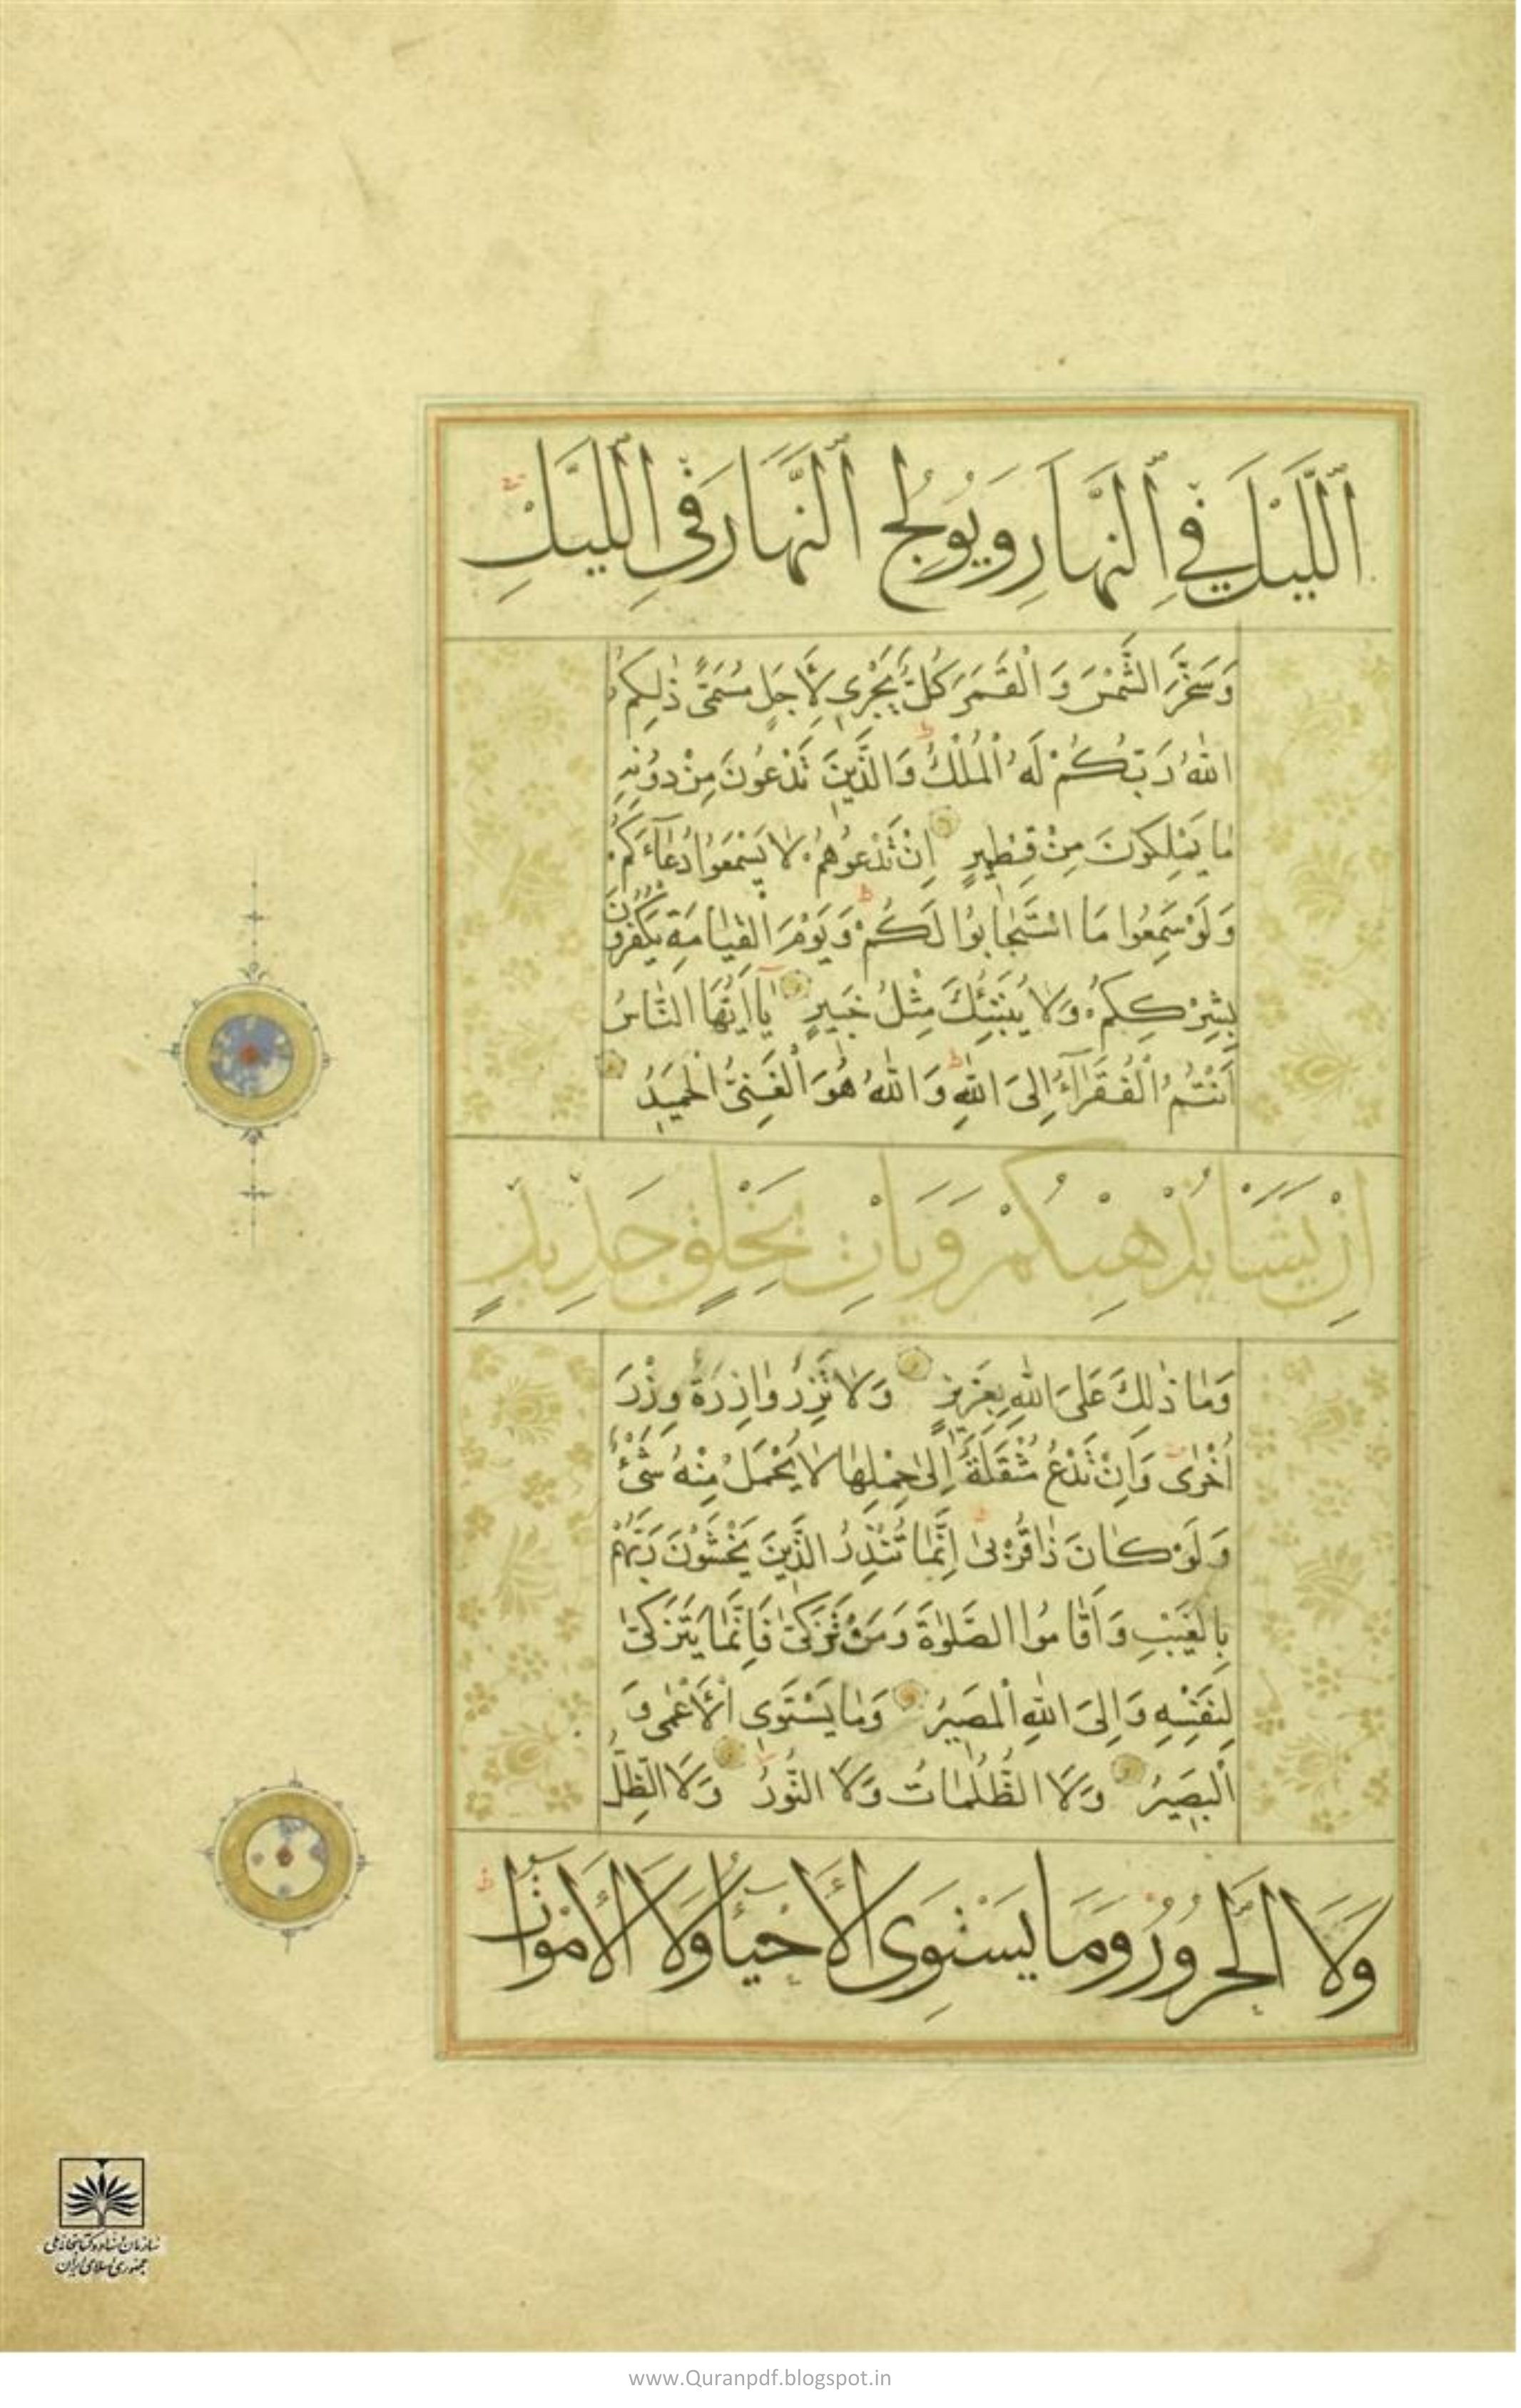 ٱللَّيْلَ فِي ٱلنَّهَارِ وَيُولِجُ ٱلنَّهَارَ فِي ٱللَّيْلِ
وَسَخَّرَ الشَّمْسَ وَ الْقَمَرَ كُلٌّ يَجْرِي لِأَجَلٍ مُسَمًّى ذٰلِكُمُ
اللّٰهُ رَبُّكُمْ لَهُ الْمُلْكُ وَالَّذِينَ تَدْعُونَ مِنْ دُونِهِ
مٰا يَمْلِكُونَ مِنْ قِطْمِيرٍ اِنْ تَدْعُوهُمْ لٰا يَسْمَعُوا دُعٰٓاءَكُمْ
وَلَوْ سَمِعُوا مَا اسْتَجٰابُوا لَكُمْ وَيَوْمَ الْقِيٰامَةِ يَكْفُرُونَ
بِشِرْكِكُمْ وَلٰا يُنَبِّئُكَ مِثْلُ خَبِيرٍ يٰٓا اَيُّهَا النّٰاسُ
اَنْتُمُ الْفُقَرٰٓاءُ اِلَى اللّٰهِ وَاللّٰهُ هُوَ الْغَنِيُّ الْحَمِيدُ
اِنْ يَشَأْ يُذْهِبْكُمْ وَيَأْتِ بِخَلْقٍ جَدِيدٍ
وَمٰا ذٰلِكَ عَلَى اللّٰهِ بِعَزِيزٍ وَلٰا تَزِرُ وٰازِرَةٌ وِزْرَ
اُخْرٰى وَاِنْ تَدْعُ مُثْقَلَةٌ اِلىٰ حِمْلِهٰا لٰا يُحْمَلْ مِنْهُ شَيْءٌ
وَلَوْ كٰانَ ذٰا قُرْبىٰ اِنَّمٰا تُنْذِرُ الَّذِينَ يَخْشَوْنَ رَبَّهُمْ
بِالْغَيْبِ وَاَقٰامُوا الصَّلٰوةَ وَمَنْ تَزَكّٰى فَاِنَّمٰا يَتَزَكّٰى
لِنَفْسِهِ وَاِلَى اللّٰهِ الْمَصِيرُ وَمٰا يَسْتَوِي الْأَعْمٰى وَ
الْبَصِيرُ وَلَا الظُّلُمٰاتُ وَلَا النُّورُ وَلَا الظِّلُّ
وَلَا ٱلْحَرُورُ وَمَا يَسْتَوِي الْأَحْيَآءُ وَلَا الْأَمْوَاتُ
سازمان اسناد و کتابخانه ملی
جمهوری اسلامی ایران
www.Quranpdf.blogspot.in